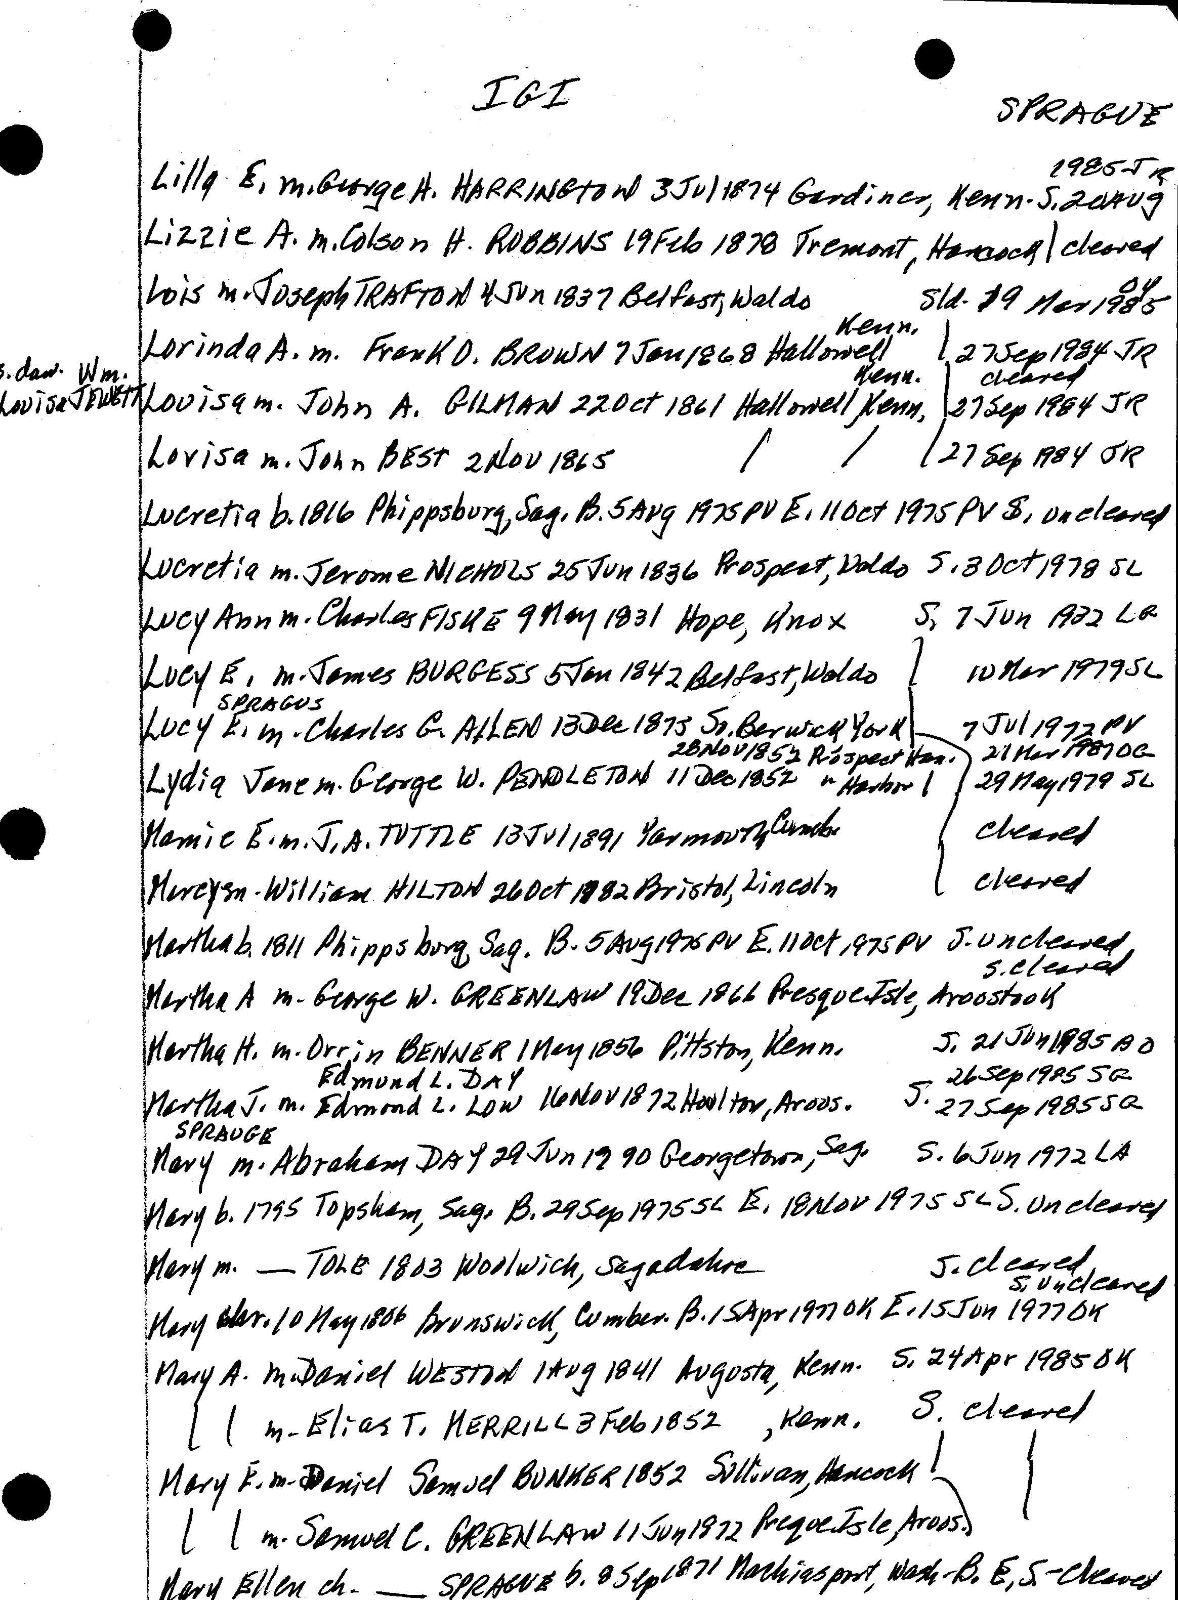 IGI
SPRAGUE
1985 JR
Lilla E. m. George A. HARRINGTON 3 Jul 1874 Gardiner, Kenn. S. 20 Aug
Lizzie A. m. Colson H. ROBBINS 19 Feb 1878 Tremont, Hancock | cleared
Lois m. Joseph TRAFTON 4 Jun 1837 Belfast, Waldo Sld. 19 Mar 1985
Kenn.
Lorinda A. m. Frank O. BROWN 7 Jan 1868 Hallowell | 27 Sep 1984 JR
s. dau. Wm. Kenn. cleared
Louisa JEWETT Louisa m. John A. GILMAN 22 Oct 1861 Hallowell, Kenn. 27 Sep 1984 JR
Lovisa m. John BEST 2 Nov 1865 / / | 27 Sep 1984 JR
Lucretia b. 1816 Phippsburg, Sag. B. 5 Aug 1975 PV E. 11 Oct 1975 PV S. uncleared
Lucretia m. Jerome NICHOLS 25 Jun 1836 Prospect, Waldo S. 3 Oct 1978 SL
Lucy Ann m. Charles FISKE 9 May 1831 Hope, Knox S. 7 Jun 1932 LG
Lucy E. m. James BURGESS 5 Jan 1842 Belfast, Waldo 10 Mar 1979 SL
SPRAGUS
Lucy E. m. Charles G. ALLEN 13 Dec 1875 So. Berwick York 7 Jul 1977 PV
28 Nov 1852 Prospect Han. 21 Mar 1987 OG
Lydia Jane m. George W. PENDLETON 11 Dec 1852 " Harbor | 29 May 1979 SL
Mamie E. m. J. A. TUTTLE 13 Jul 1891 Yarmouth, Cumb. cleared
Mercy m. William HILTON 26 Oct 1782 Bristol, Lincoln cleared
Martha b. 1811 Phippsburg, Sag. B. 5 Aug 1975 PV E. 11 Oct 1975 PV S. uncleared
S. cleared
Martha A m. George W. GREENLAW 19 Dec 1866 Presque Isle, Aroostook
Martha H. m. Orrin BENNER 1 May 1856 Pittston, Kenn. S. 21 Jun 1985 AO
Edmond L. DAY 26 Sep 1985 SG
Martha J. m. Edmond L. LOW 16 Nov 1872 Houlton, Aroos. S. 27 Sep 1985 SG
SPRAUGE
Mary m. Abraham DAY 29 Jun 1790 Georgetown, Sag. S. 6 Jun 1972 LA
Mary b. 1795 Topsham, Sag. B. 29 Sep 1975 SL E. 18 Nov 1975 SL S. uncleared
Mary m. — TOLE 1803 Woolwich, Sagadahoc S. cleared
S. uncleared
Mary chr. 10 May 1806 Brunswick, Cumber. B. 15 Apr 1977 OK E. 15 Jun 1977 OK
Mary A. m. Daniel WESTON 1 Aug 1841 Augusta, Kenn. S. 24 Apr 1985 OK
| | m. Elias T. MERRILL 3 Feb 1852 , Kenn. S. cleared
Mary E. m. Daniel Samuel BUNKER 1852 Sullivan, Hancock
| | m. Samuel C. GREENLAW 11 Jun 1872 Preque Isle, Aroos.
Mary Ellen ch. — SPRAGUE b. 8 Sep 1871 Machiasport, Wash. B. E, S. - cleared